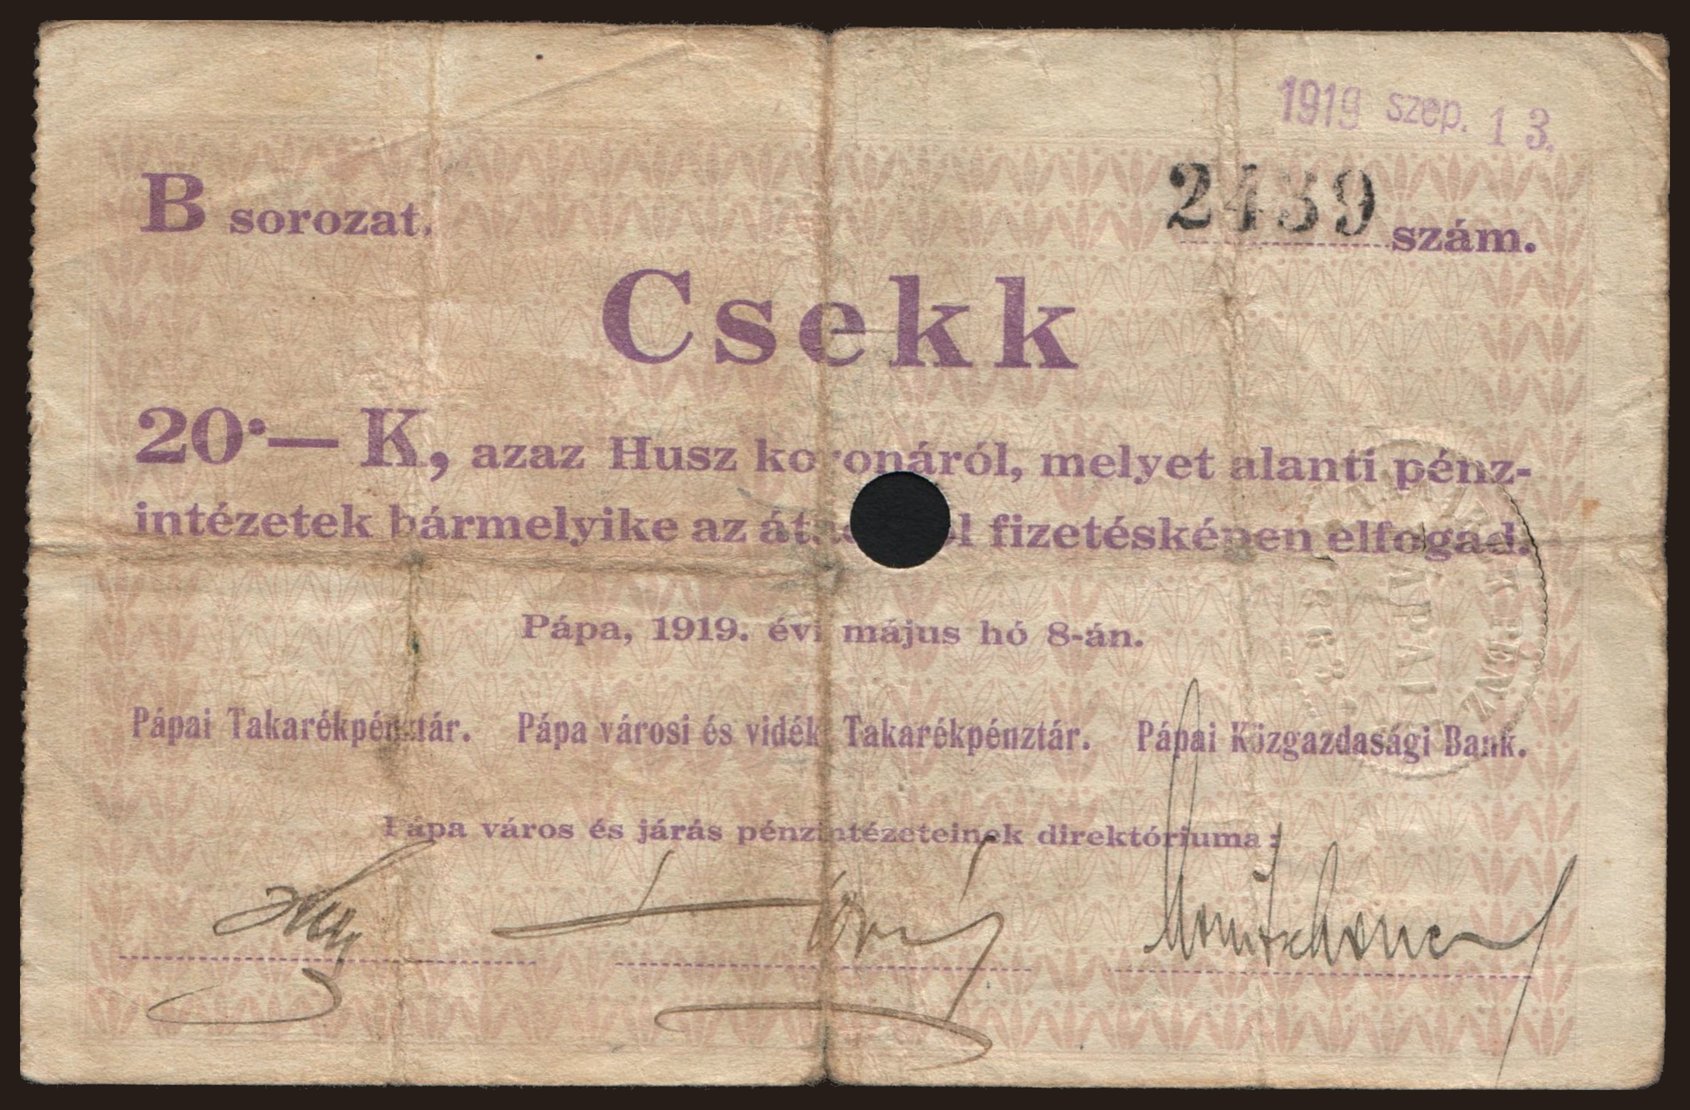 1919 szep. 13.
B sorozat.
2439 szám.
Csekk
20·— K, azaz Husz koronáról, melyet alanti pénz-
intézetek bármelyike az fizetésképen elfogad.
Pápa, 1919. évi május hó 8-án.
Pápai Takarékpénztár. Pápa városi és vidéki Takarékpénztár. Pápai Közgazdasági Bank.
Pápa város és járás pénzintézeteinek direktóriuma: